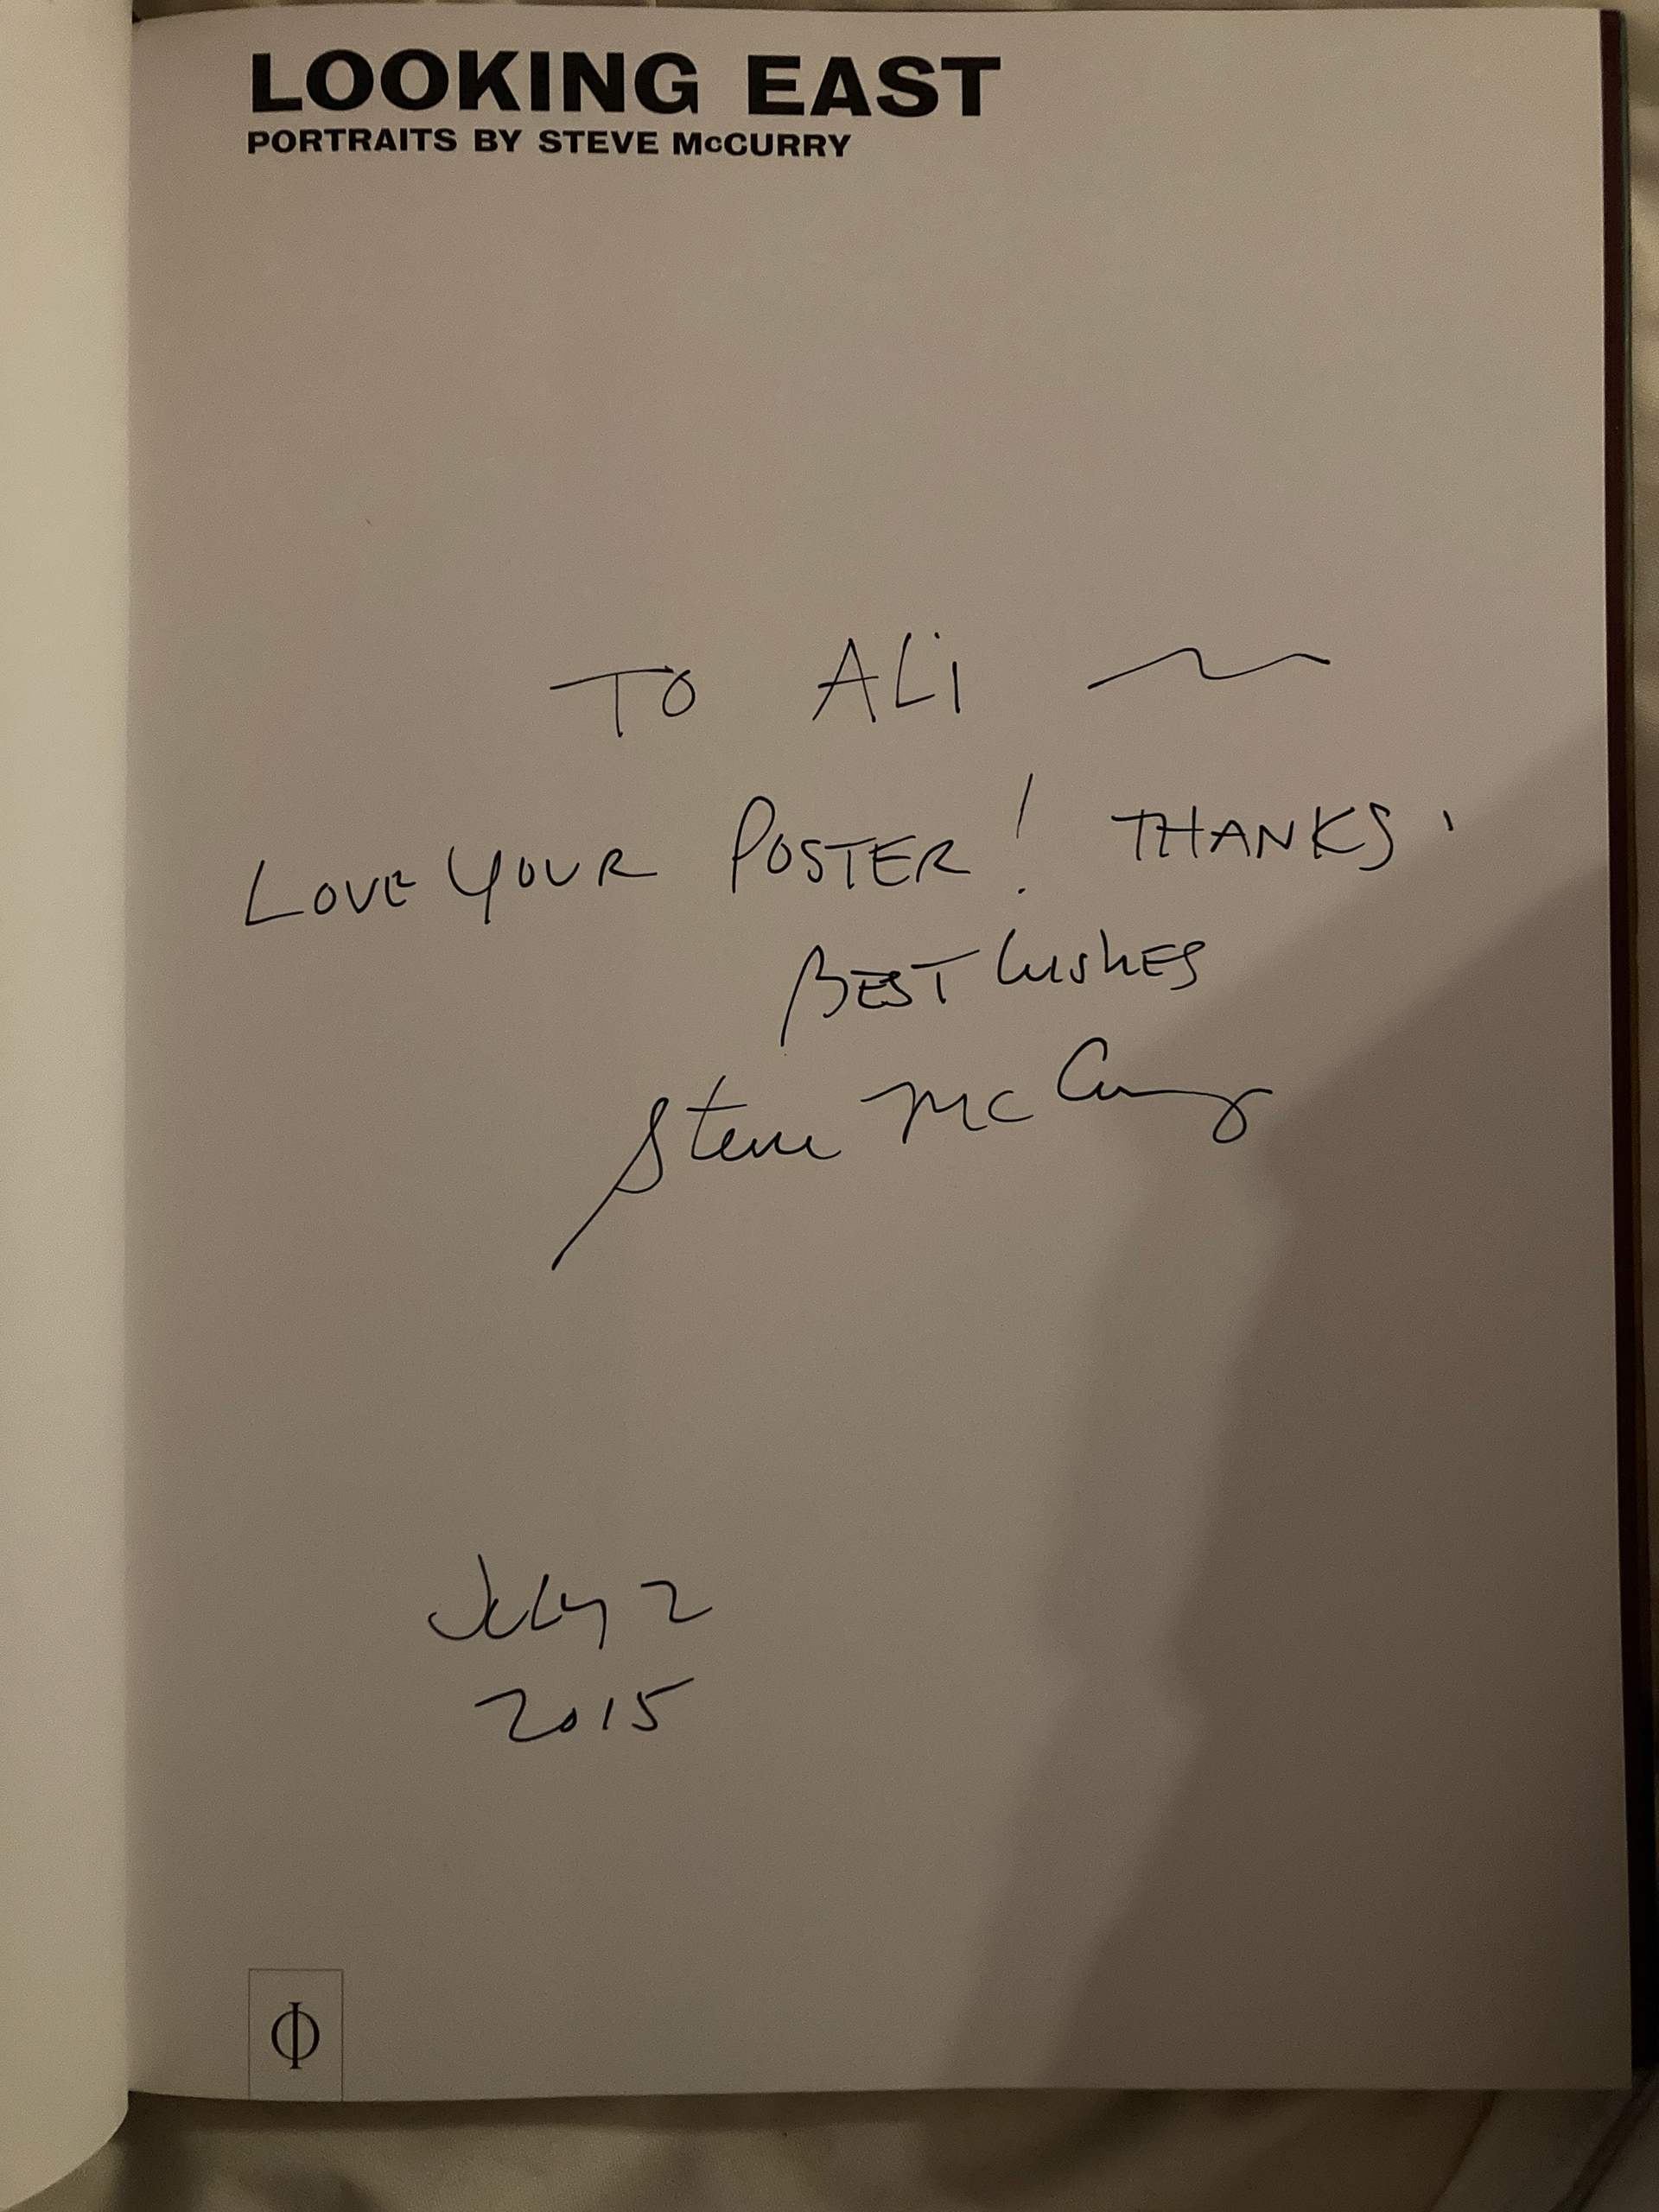 LOOKING EAST
PORTRAITS BY STEVE McCURRY
TO ALi ~
LOVE YOUR POSTER! THANKS,
BEST WishES
Steve McCurry
July 2
2015
Φ